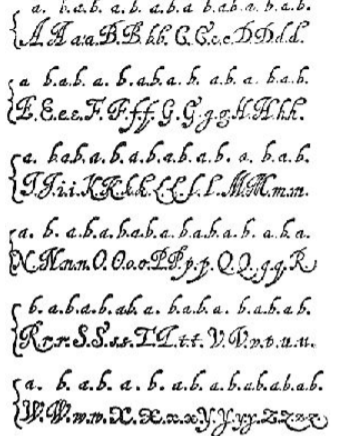 a. b.a.b. a.b. a.b.a b.ab.a b.a.b.
A A a.a B.B. b.b. C.C.c.c D.D.d.d.
a b.a.b. a. b.a.b.a b. a.b. a. b.a.b.
E.E.e.e.F.F.f.f. G.G.g.g H.H.h.h.
a. b.a.b.a.b.a.b.a.b.a.b. a. b.a.b.
I.I.i.i.K.K.k.k.L.L.l.l.M.M.m.m.
a. b. a.b.a.b.a.b.a b.a.b.a b. a.b.a.
N.N.n.n.O.O.o.o.P.P.p.p.Q.Q.q.q.R
b. a.b.a.b.ab.a. b.a.b.a. b.a.b.ab.
R.r.r.S.S.s.s.T.T.t.t. V.V.v.v.u.u.
a. b. a.b. a. b. a.b. a.b.a.b.a.b.a.b.
W.W.w.w.X.X.x.x.Y.Y.y.y.Z.Z.z.z